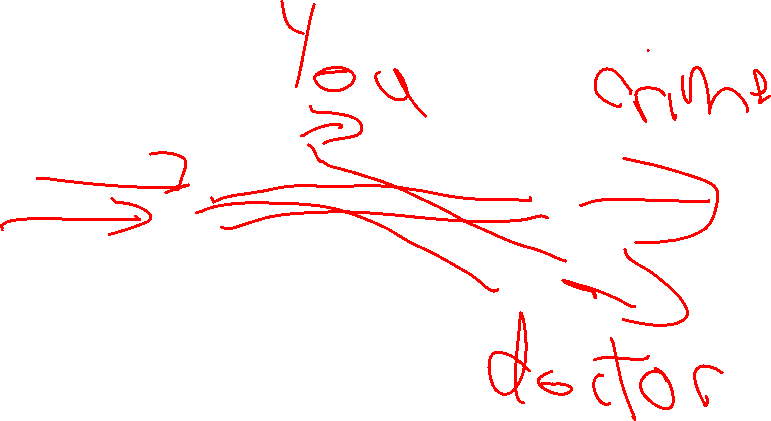 You
crime
doctor